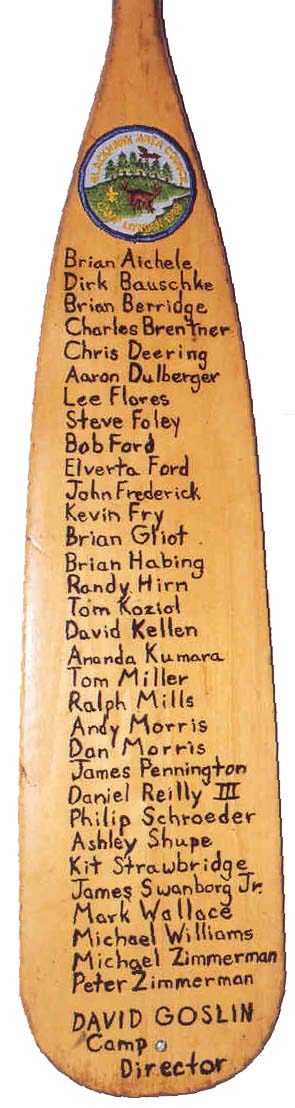 BLACKHAWK AREA COUNCIL
Brian Aichele
Dirk Bauschke
Brian Berridge
Charles Brentner
Chris Deering
Aaron Dulberger
Lee Flores
Steve Foley
Bob Ford
Elverta Ford
John Frederick
Kevin Fry
Brian Gliot
Brian Habing
Randy Hirn
Tom Koziol
David Kellen
Ananda Kumara
Tom Miller
Ralph Mills
Andy Morris
Dan Morris
James Pennington
Daniel Reilly III
Philip Schroeder
Ashley Shupe
Kit Strawbridge
James Swanborg Jr.
Mark Wallace
Michael Williams
Michael Zimmerman
Peter Zimmerman
DAVID GOSLIN
Camp
Director